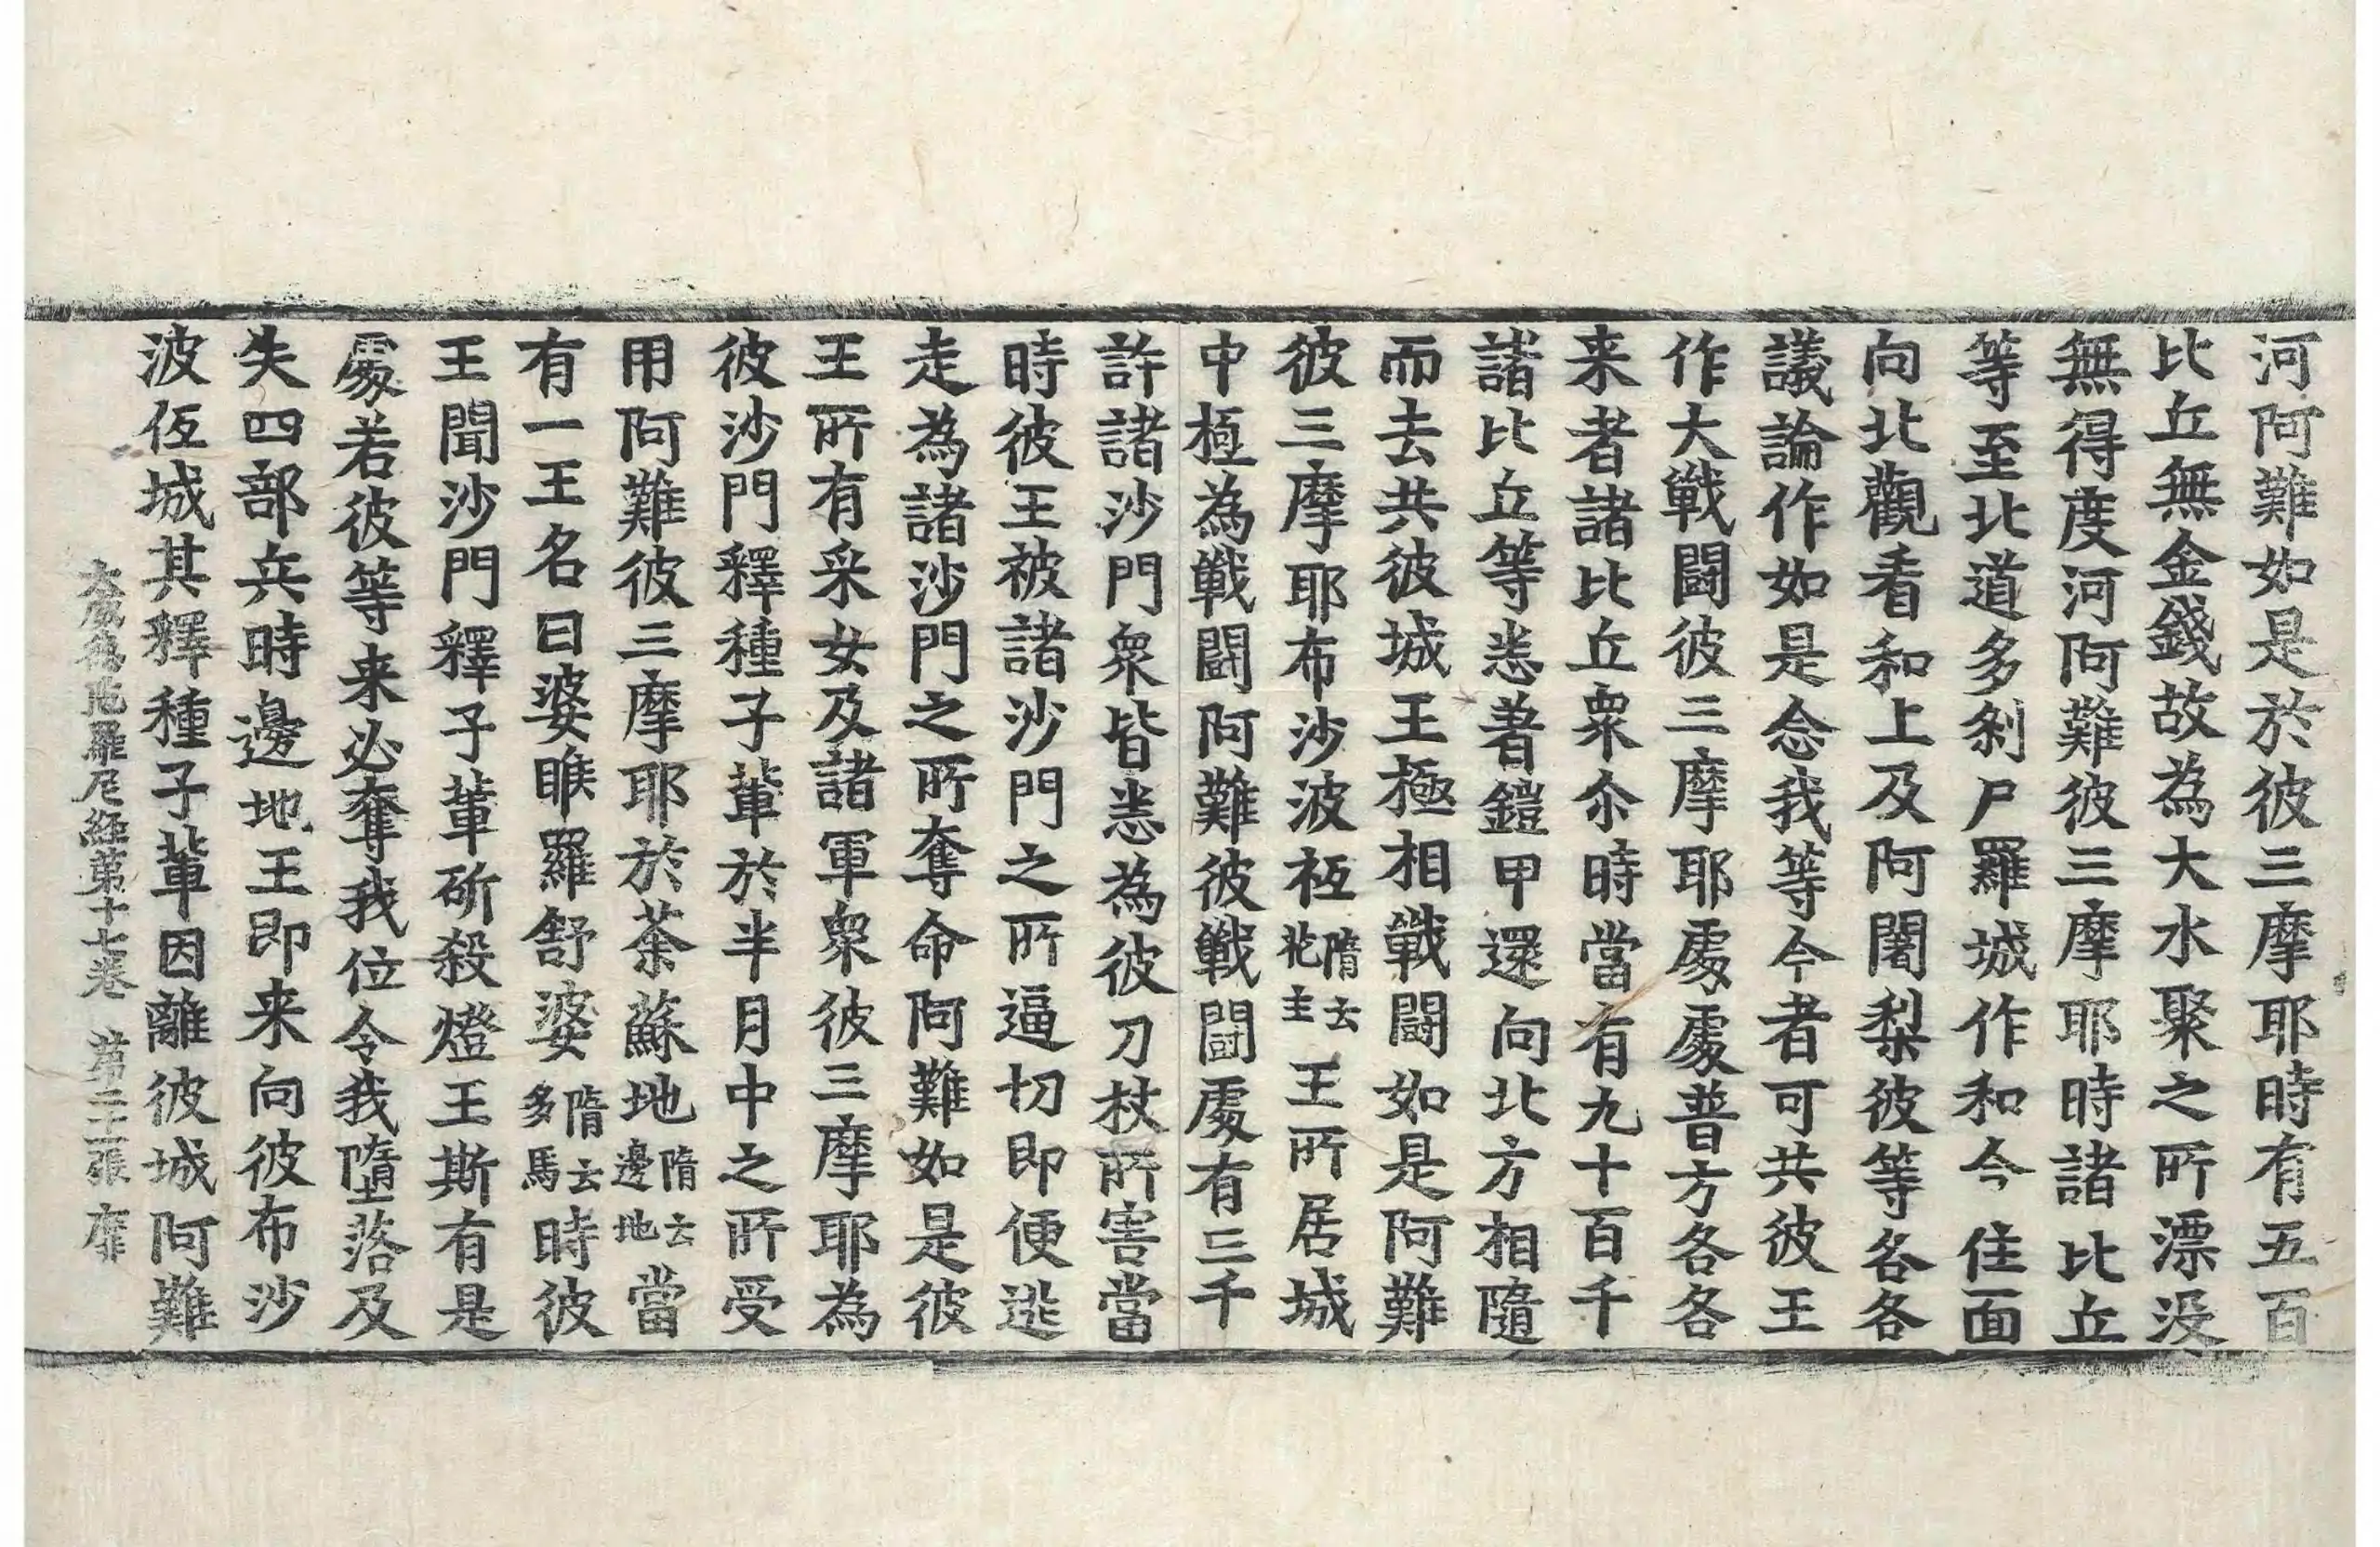 河阿難如是於彼三摩耶時有五百
比丘無金錢故為大水聚之所漂没
無得度河阿難彼三摩耶時諸比丘
等至北道多剎尸羅城作和今住面
向北觀看和上及阿闍梨彼等各各
議論作如是念我等今者可共彼王
作大戰闘彼三摩耶處處普方各各
来者諸比丘衆尒時當有九十百千
諸比丘等悉著鎧甲還向北方相隨
而去共彼城王極相戰闘如是阿難
彼三摩耶布沙波𢓜隋云花主王所居城
中極為戰闘阿難彼戰闘處有三千
許諸沙門衆皆悉為彼刀杖所害當
時彼王被諸沙門之所逼切即便逃
走為諸沙門之所奪命阿難如是彼
王所有采女及諸軍衆彼三摩耶為
彼沙門釋種子輩於半月中之所受
用阿難彼三摩耶於茶蘇地隋云邊地當
有一王名曰婆睺羅舒婆隋云多馬時彼
王聞沙門釋子輩斫殺燈王斯有是
處若彼等来必奪我位令我墮落及
失四部兵時邊地王即来向彼布沙
波𢓜城其釋種子輩因離彼城阿難
大威德陁羅尼経第十七卷 第二十張 靡